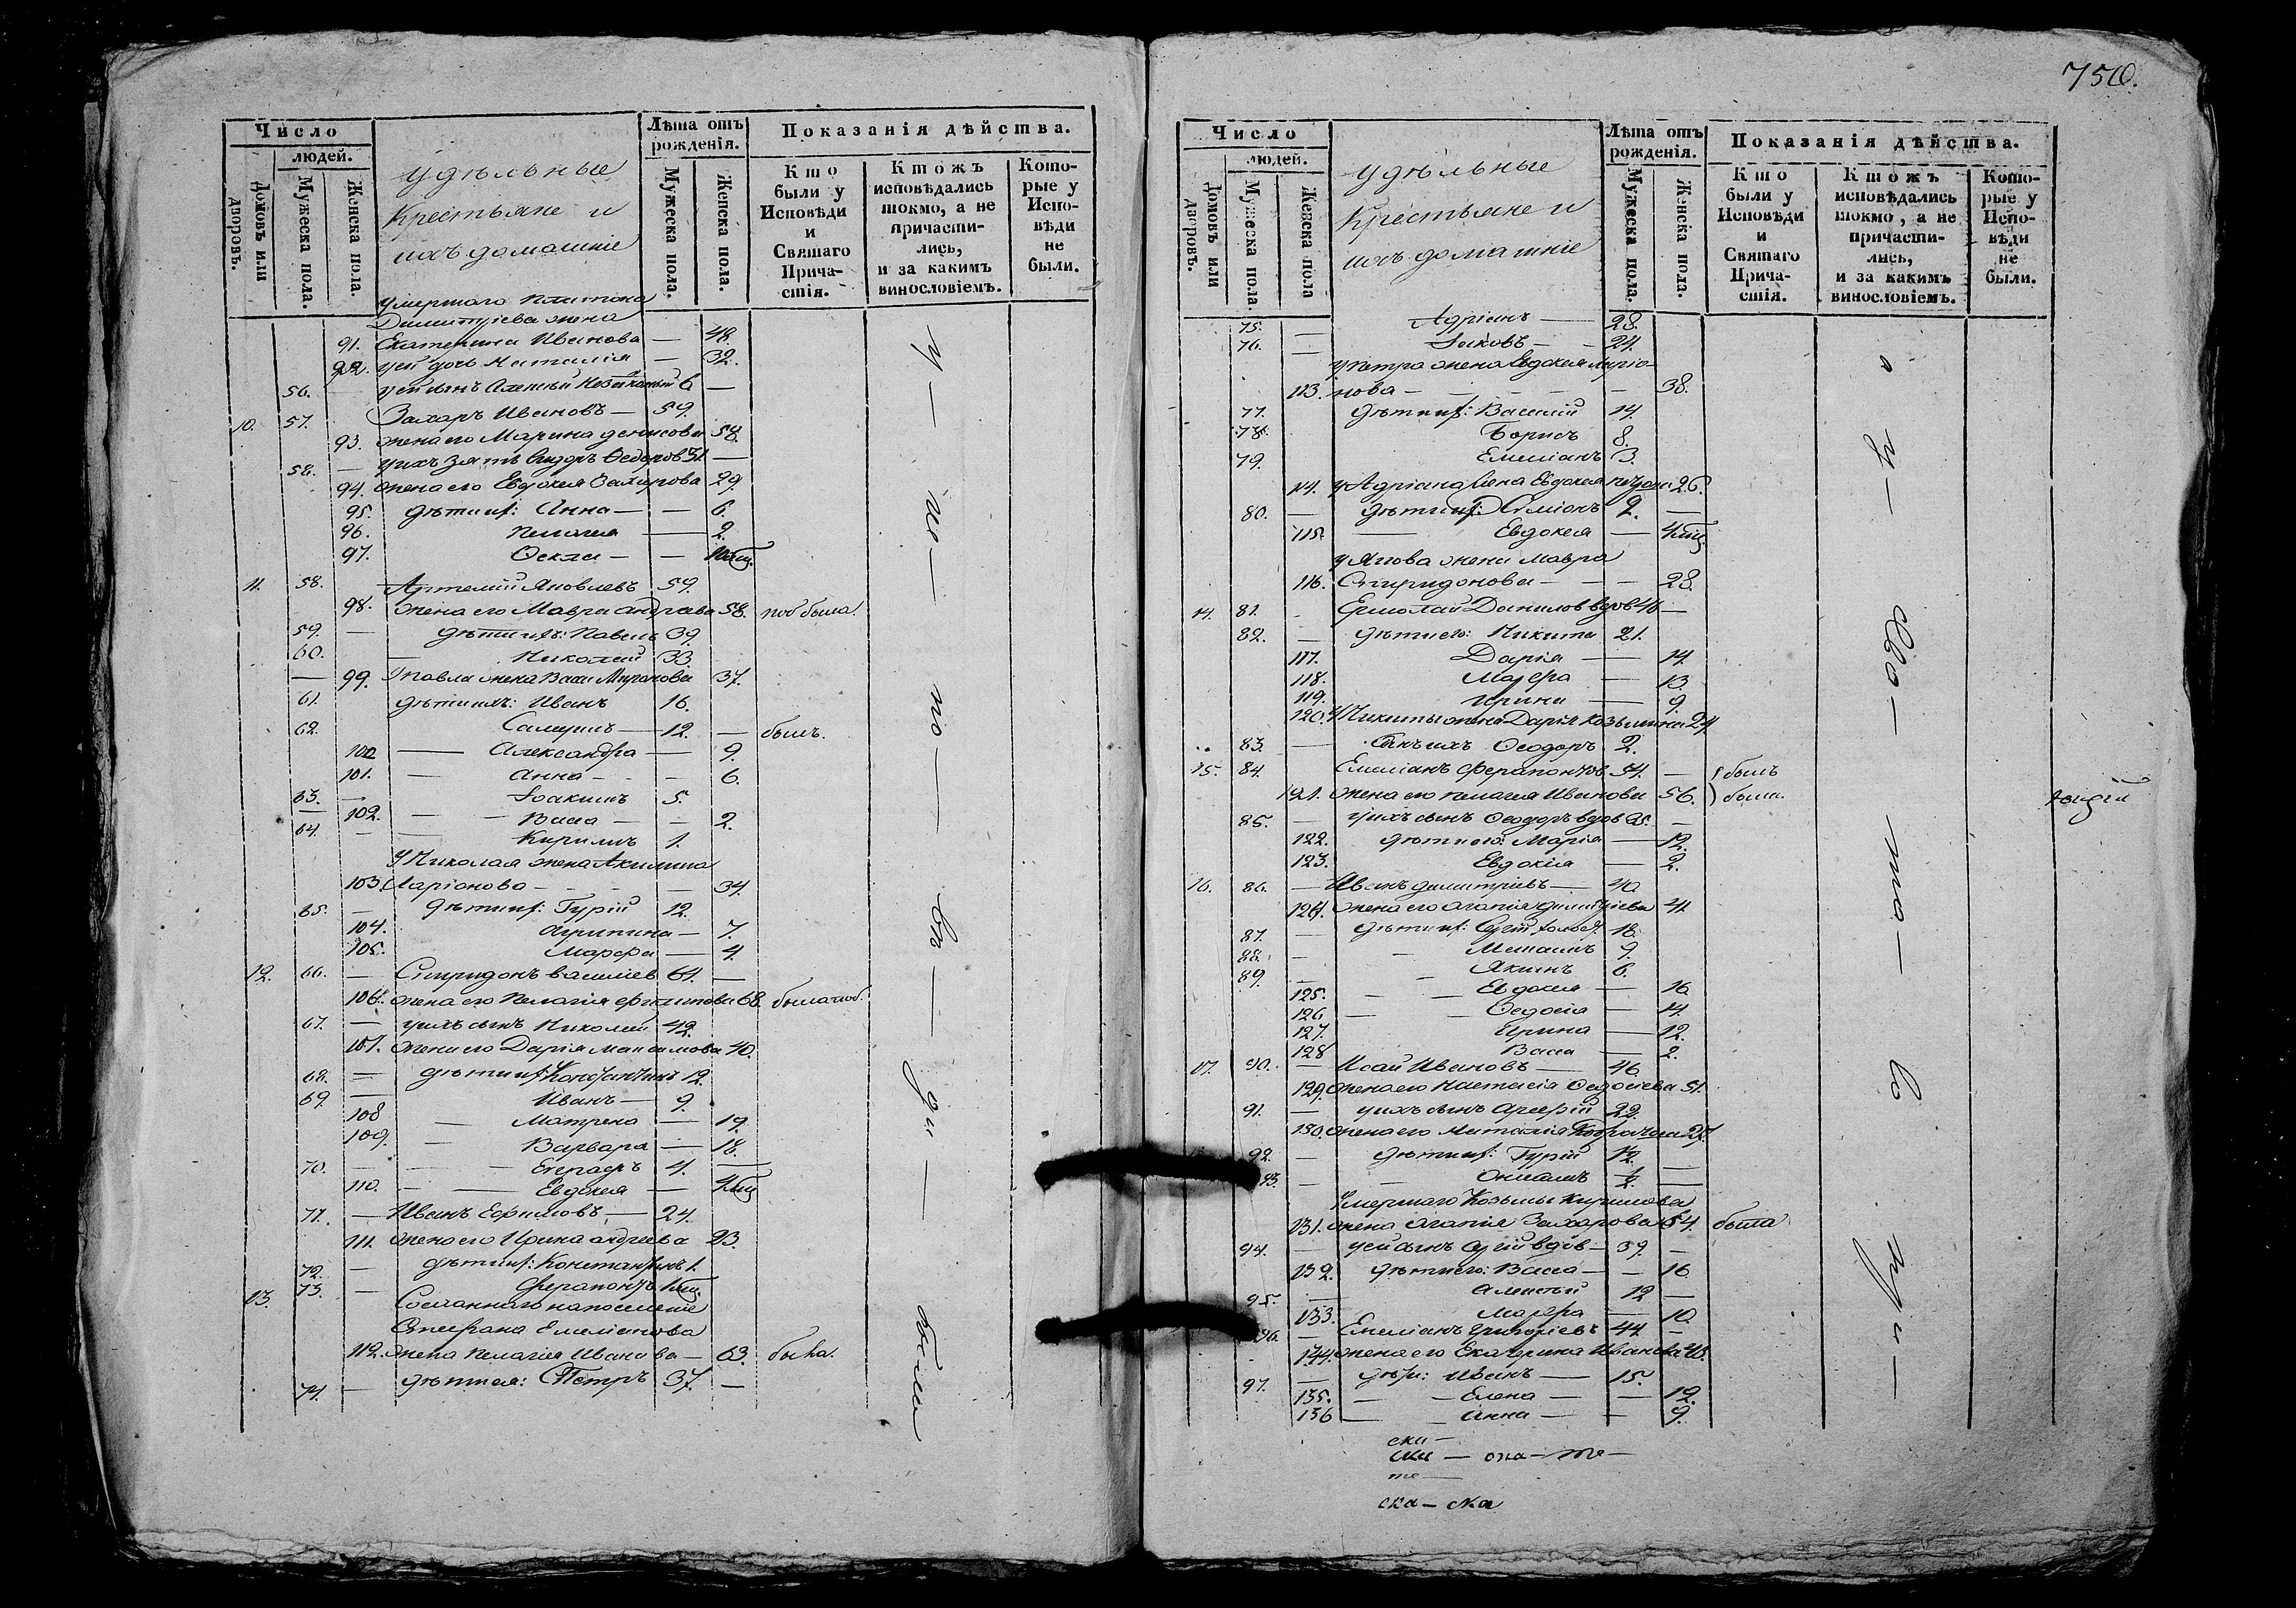 750.
Число
людей.
Домовъ или дворовъ.
Мужеска пола.
Женска пола.
удѣльные
крестьяне и
ихъ домашніе
Лѣта отъ
рожденія.
Мужеска пола.
Женска пола.
Показанія дѣйства.
Кто
были у
Исповѣди
и
Святаго
Прича-
стія.
Ктожъ
исповѣдались
токмо, а не
причасти-
лись,
и за какимъ
винословіемъ.
Кото-
рые у
Испо-
вѣди
не
были.
умершаго Платона
Димитріева жена
91. Екатерина Иванова — 48.
92. уей дочь Наталія — 32.
56. уей сынъ Алексѣй 6 —
10. 57. Захаръ Ивановъ — 59.
93. жена его Марина Денисова 58.
58. — уихъ зять Сидоръ Ѳедоровъ 31. —
94. жена его Евдокея Захарова 29.
95. дѣти их: Анна — — 6.
96. Пелагея — 2.
97. Ѳекла — —
11. 58. Артемій Яковлевъ 59.
98. жена его Мавра Андреева 58. была.
59. — дѣти ихъ: Павелъ 39.
60. — Николай 33.
— 99. У Павла жена Васса Миронова 37.
61. дѣти ихъ: Иванъ 16.
62. Самуилъ — 12. — былъ.
100 — Александра — 9.
101. — Анна — — 6.
63. — Іоакимъ 5.
— 102. — Васса — — 2.
64. — Кирилъ 1.
У Николая жена Акилина
103. Ларіонова — — 34.
65. — дѣти их: Гурій 12.
104. Агрипина — 7.
105. Марфа — 4.
12. 66. — Спиридонъ Василіев 64. —
106. жена его Пелагія Филипова 68.
67. — уихъ сынъ Николай 42.
107. жена его Дарія Максимова 40.
68. — дѣти их: Константинъ 12.
69. — Иванъ — 9.
108 — Матрена — 19.
109. — Варвара — 18.
70. — — — 4. —
110. — — Евдокея — 4 мц
71. — Иванъ Ефимовъ — 24.
111. жена его Ирина Андреева 23.
72. — дѣти их: Константинъ 1.
73. — Ферапонтъ
13. Сосланнаго на поселеніе
Стефана Емеліанова
112. жена Пелагея Иванова — 63. была.
74. — дѣти ея: Петръ 37. —
Число
людей.
Домовъ или дворовъ.
Мужеска пола.
Женска пола
удѣльные
крестьяне и
ихъ домашніе
Лѣта отъ
рожденія.
Мужеска пола.
Женска пола.
Показанія дѣйства.
Кто
были у
Исповѣди
и
Святаго
Прича-
стія.
Ктожъ
исповѣдались
токмо, а не
причасти-
лись,
и за какимъ
винословіемъ.
Кото-
рые у
Испо-
вѣди
не
были.
75. — Адріанъ — 28.
76. — Іаковъ — — 24.
у Петра жена Евдокея Ларіо-
113. нова — — — — — 38.
77. дѣти их: Василій 14.
78. Борисъ 8.
79. Емеліанъ 3.
114. у Адріана жена Евдокея 26.
80. — дѣти их: Симіонъ 2. —
115. — Евдокея — 4 мц
у Якова жена Мавра
116. Спиридонова — — — 28.
14. 81. Ермолай Данилов вдов 46 —
82. — дѣти его: Никита 21.
117. Дарія — — 14.
118. Марфа — 13.
119. Ирина — 9.
120. У Никиты жена Дарія Козьмина 24
83. — сынъ ихъ Ѳеодоръ 2.
15. 84. Емеліанъ Ферапонтов 54. — былъ
121. жена его Пелагея Иванова 56. была.
85. — уихъ сынъ Ѳеодоръ вдов 35. —
122. дѣти его: Марія — 12.
123. Евдокія — 2.
16. 86. — Иванъ Димитріевъ — 40
124. жена его Агапія Димитріева 41
87. — дѣти их: 18.
88. — — Михаилъ 9.
89. — — Якимъ 6.
125. — — Евдокея — 16
126 — — Ѳедосія — 14.
127. Ирина — 12.
128 Васса — 2.
17. 90. — Исай Ивановъ — 46
129. жена его Настасія Ѳедосіева 51.
91. — уихъ сынъ 22.
130. жена его Наталія 27
92. — дѣти их: Гурій 12. —
93. — —
умершаго Козьмы Кирилова
131. жена Агапія Захарова 64. была
94. — уей сынъ вдов — 39. —
132. дѣти его: Васса — — 16
95. — Алексѣй 12 —
133. Марфа — 10.
96. — Емеліанъ Григоріевъ 44. —
134. жена его Екатерина Иванова 43.
97. — дѣти: Иванъ — 15.
135. — — Елена — — 12.
136 — — Анна — — 9.
ски —
ски — она — те —
те —
ска — ска